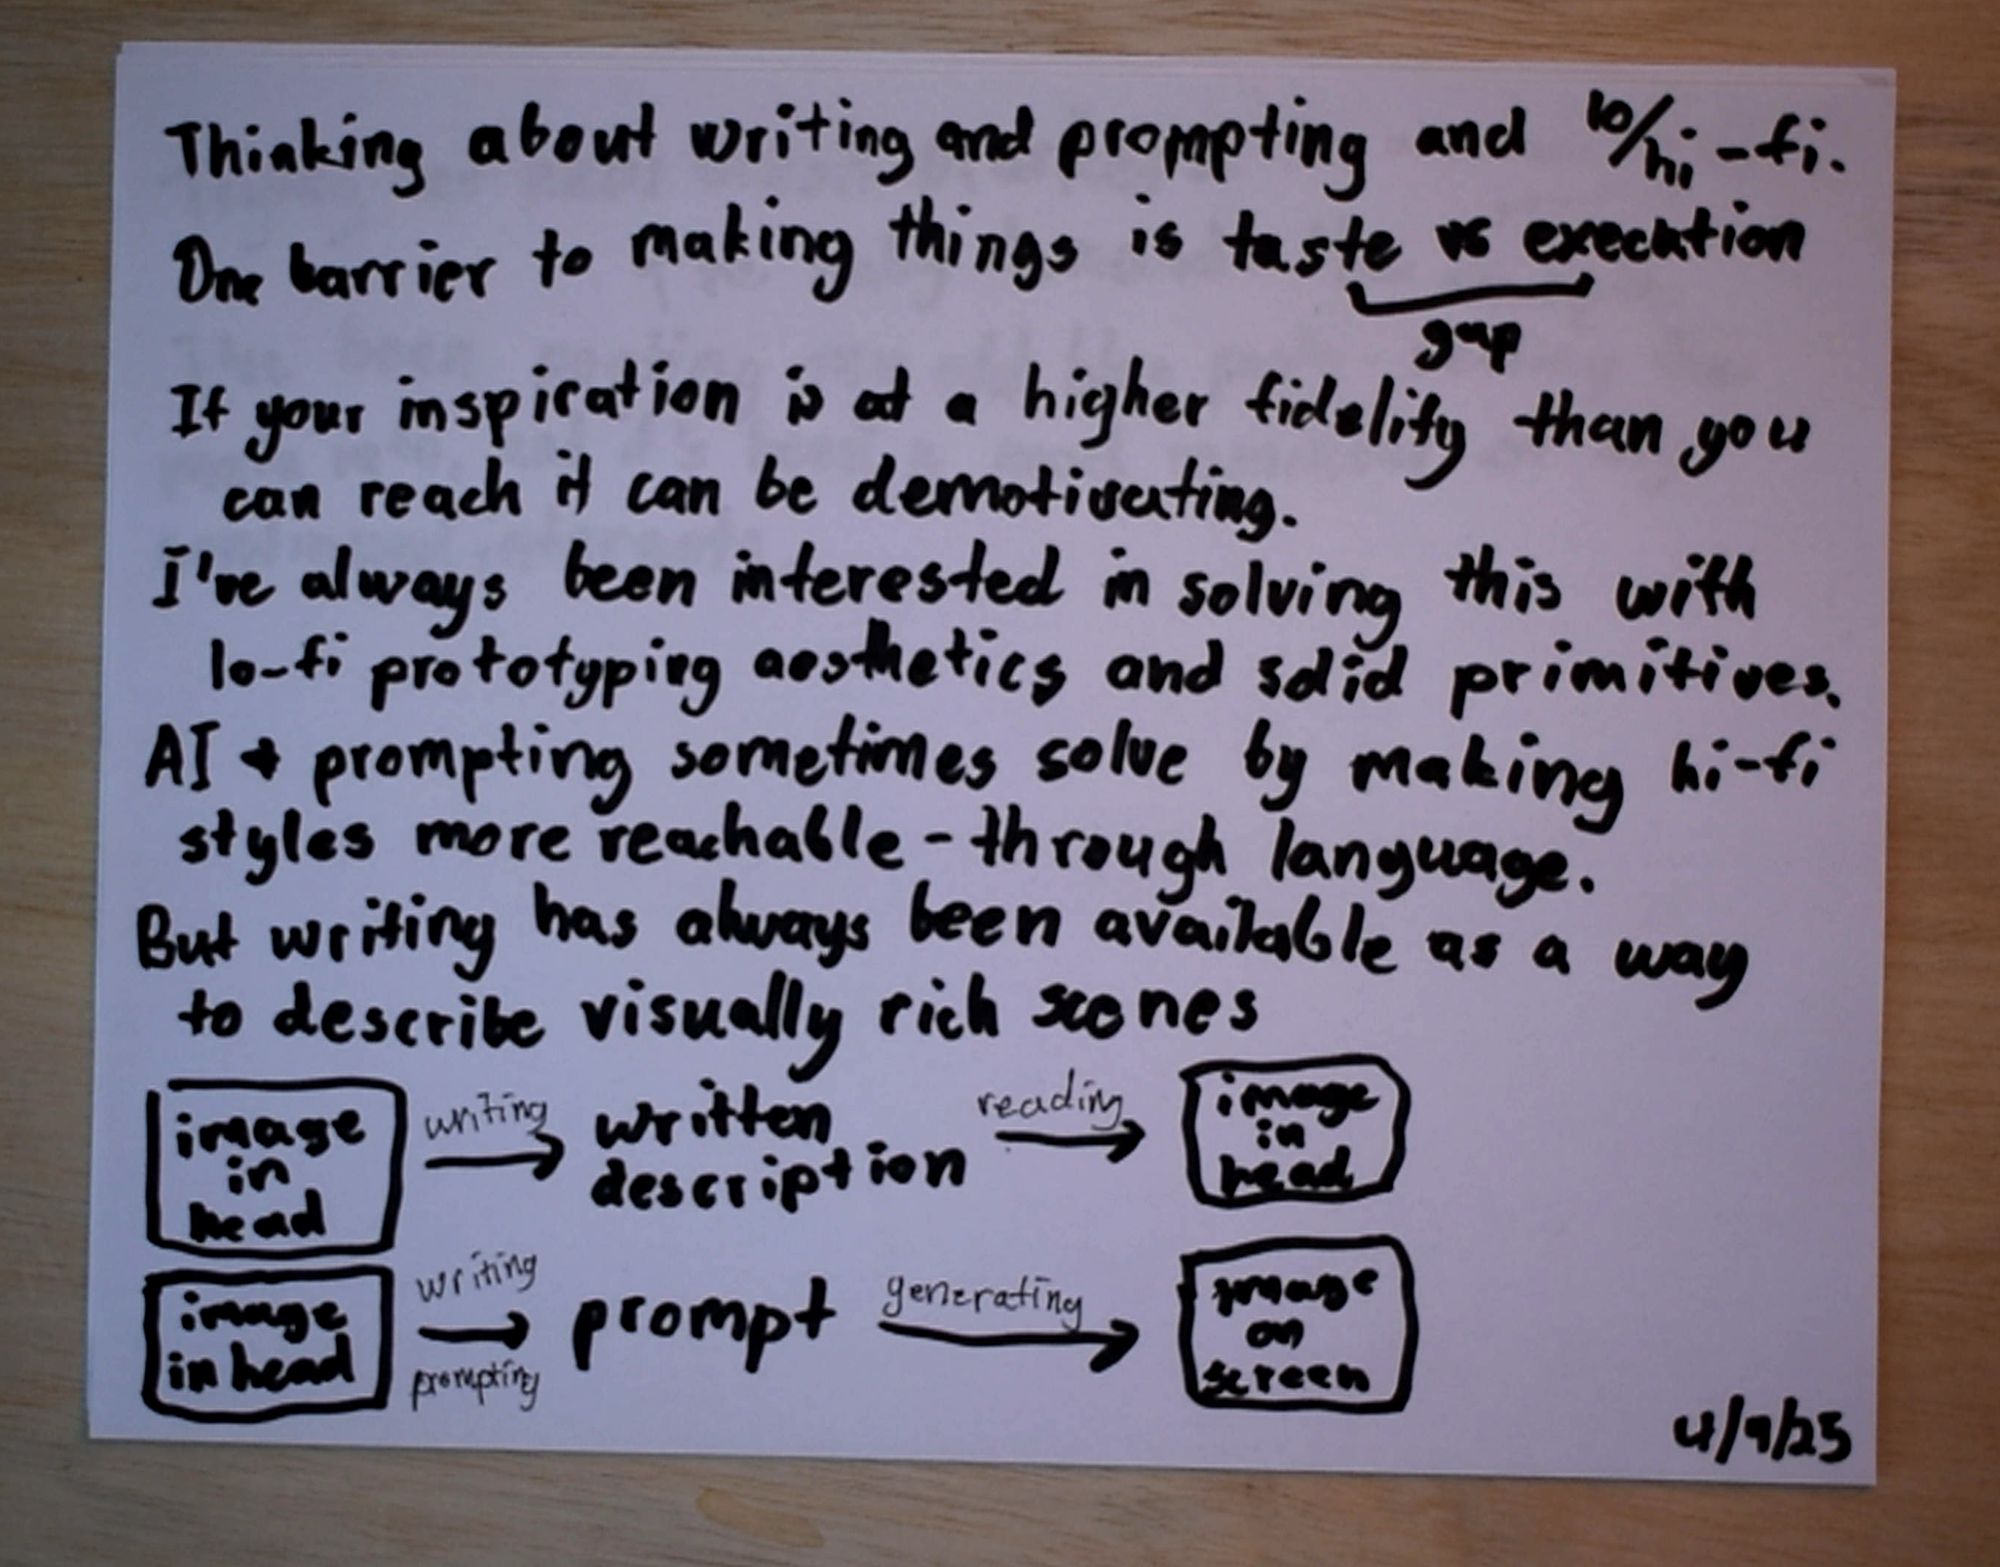 Thinking about writing and prompting and lo/hi-fi.
One barrier to making things is taste vs execution
gap
If your inspiration is at a higher fidelity than you
can reach it can be demotivating.
I've always been interested in solving this with
lo-fi prototyping aesthetics and solid primitives.
AI + prompting sometimes solve by making hi-fi
styles more reachable - through language.
But writing has always been available as a way
to describe visually rich scenes
image
in
head
writing
written
description
reading
image
in
head
image
in head
writing
prompting
prompt
generating
image
on
screen
4/9/25